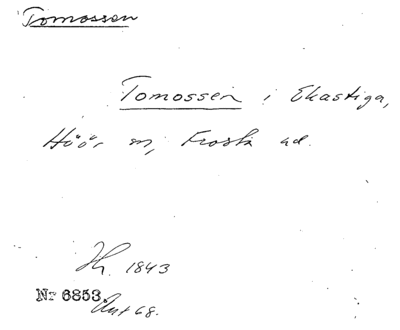 Tomossen
Tomossen i Ekastiga,
Höör sn, Frosta hd.
Hy. 1843
Nr 6853.
Ant 68.